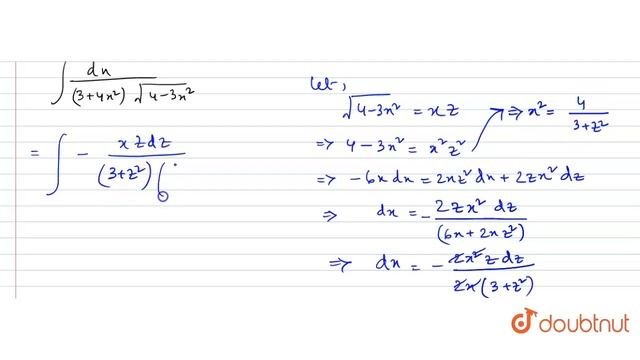 ∫ dx / (3+4x²) √4-3x²
= ∫ - x z dz / (3+z²) (
Let,
√4-3x² = xz ⇒ x² = 4 / 3+z²
⇒ 4-3x² = x²z²
⇒ -6x dx = 2xz² dx + 2zx² dz
⇒ dx = - 2zx² dz / (6x+2xz²)
⇒ dx = - 2x² z dz / 2x (3+z²)
doubtnut